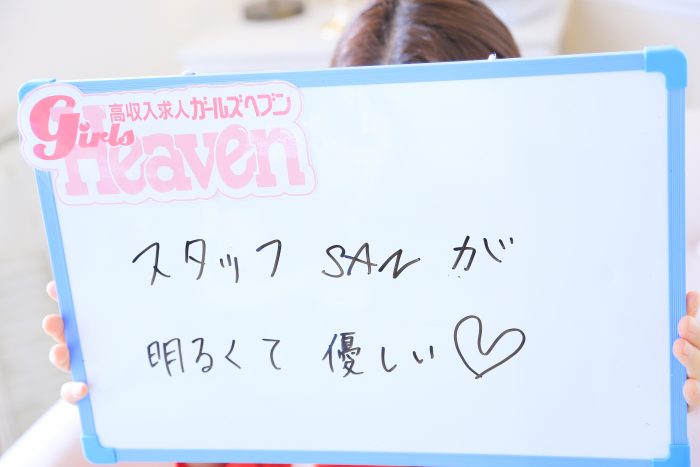 高収入求人ガールズヘブン
Girls
Heaven
スタッフ SANが
明るくて 優しい♡